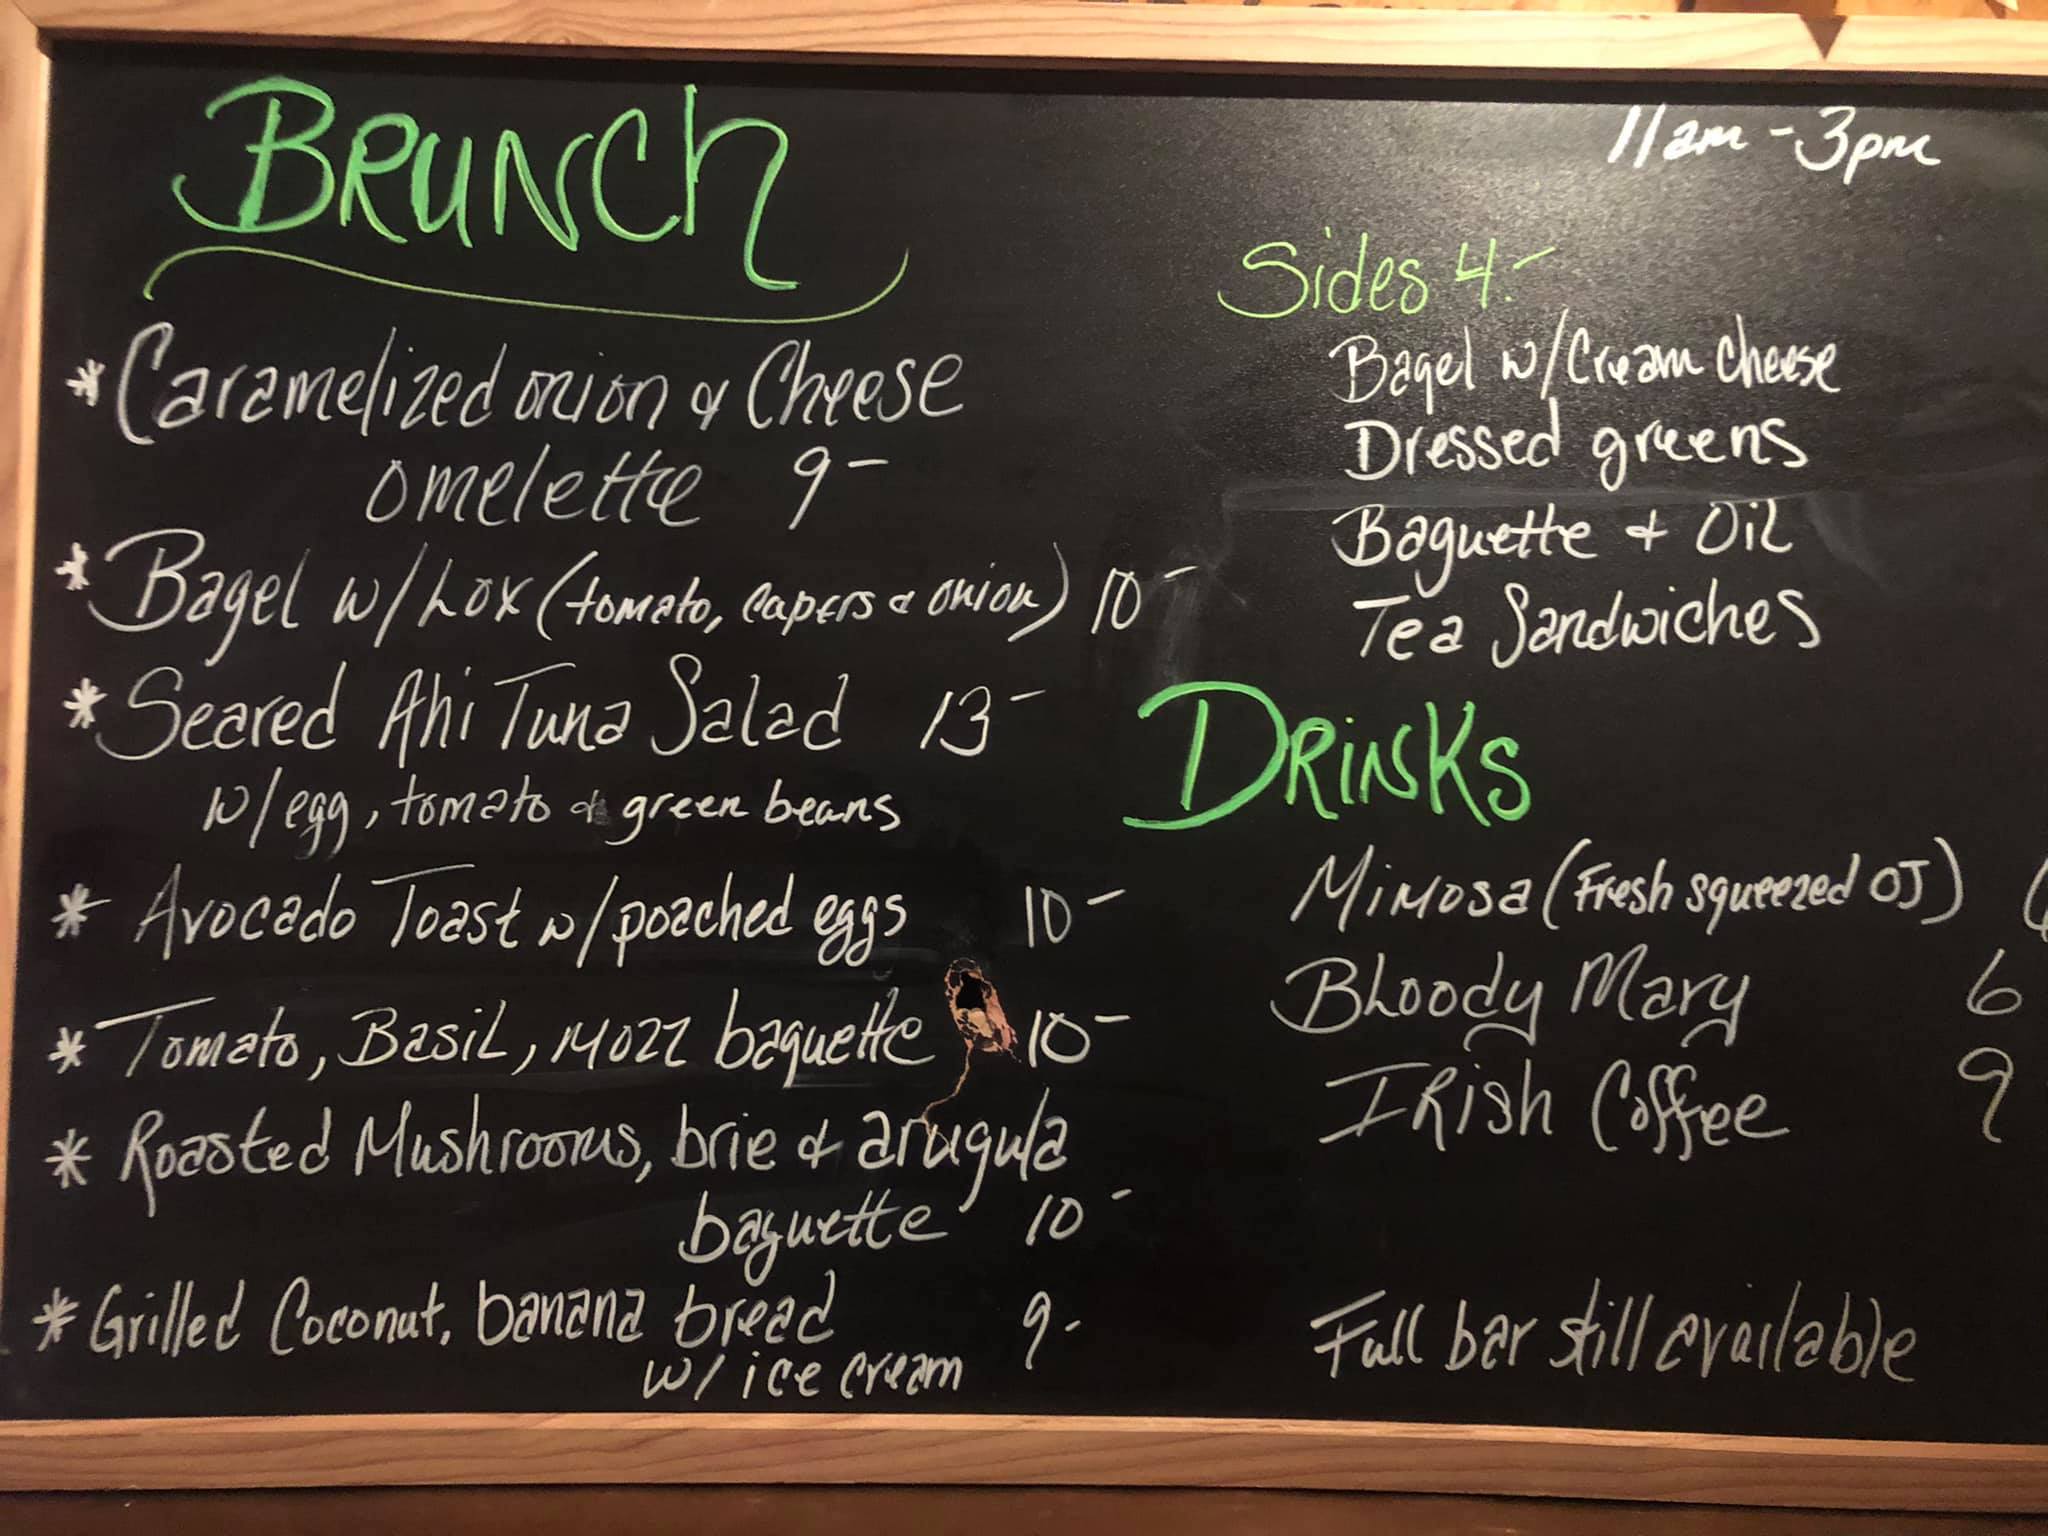 BRUNCH
* Caramelized onion & Cheese
omelette 9-
* Bagel w/ Lox (tomato, capers & onion) 10-
* Seared Ahi Tuna Salad 13-
w/ egg, tomato & green beans
* Avocado Toast w/ poached eggs 10-
* Tomato, Basil, Mozz baguette 10-
* Roasted Mushrooms, brie & arugula
baguette 10-
* Grilled Coconut, banana bread 9-
w/ ice cream
11am - 3pm
Sides 4.-
Bagel w/ Cream Cheese
Dressed greens
Baguette & Oil
Tea Sandwiches
DRINKS
Mimosa (Fresh squeezed OJ)
Bloody Mary 6
IRish Coffee 9
Full bar still available